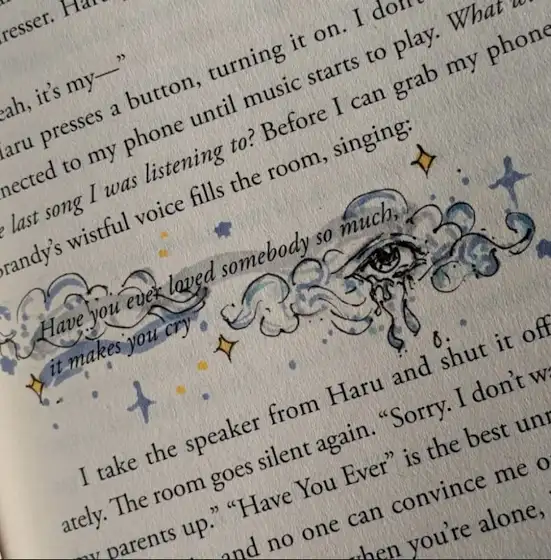 eah, it's my—"
presses a button, turning it on. I don't
to my phone until music starts to play. What
last song I was listening to? Before I can grab my phone
wistful voice fills the room, singing:
Have you ever loved somebody so much,
it makes you cry
I take the speaker from Haru and shut it off
ately. The room goes silent again. "Sorry. I don't
parents up." "Have You Ever" is the best
and no one can convince me
when you're alone,